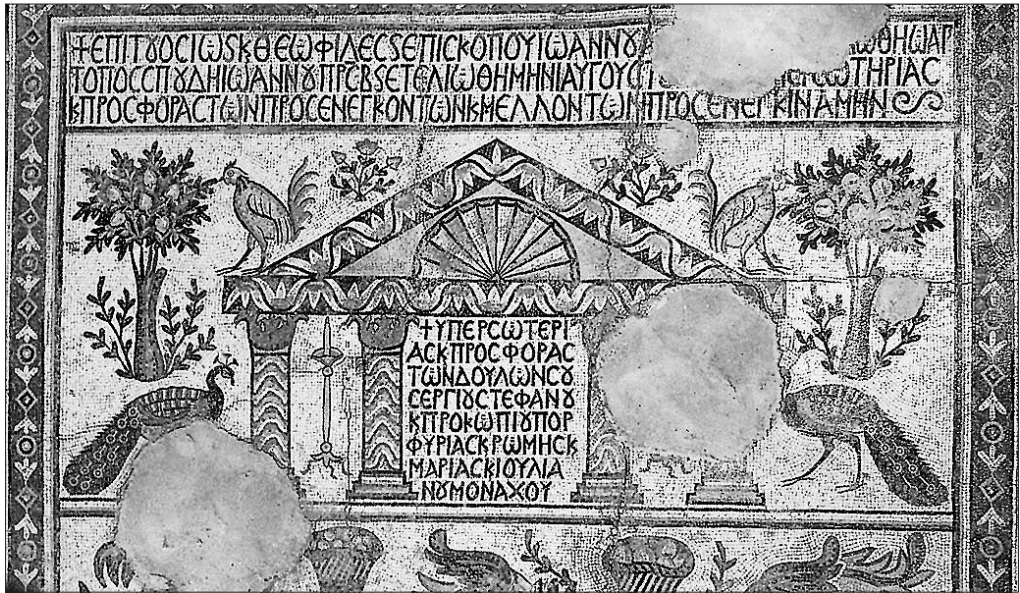 +ΕΠΙΤȣΟΣΙΩSΚΘΕΩΦΙΛΕCSΕΠΙCΚΟΠΟΥΙΩΑΝΝȢ ΩΘΗΩΑΓ
ΤΟΠΟCCΠΟΥΔΗΙΩΑΝΝȢΠΡCΒSΕΤΕΛΙΩΘΗΜΗΝΙΑΥΓΟΥC ΩΤΗΡΙΑC
ΚΠΡΟCΦΟΡΑCΤΩΝΠΡΟCΕΝΕΓΚΟΝΤΩΝΚΜΕΛΛΟΝΤΩΝΠΡΟCΕΝΕΓΚΙΝΑΜΗΝ
+ΥΠΕΡCΩΤΕΡΙ
ΑCΚΠΡΟCΦΟΡΑC
ΤΩΝΔΟΥΛΩΝCȢ
CΕΡΓΙȢCΤΕΦΑΝȢ
ΚΠΡΟΚΩΠΙȢΠΟΡ
ΦΥΡΙΑCΚΡΩΜΗCΚ
ΜΑΡΙΑCΚΙΟΥΛΙΑ
ΝȢΜΟΝΑΧΟΥ